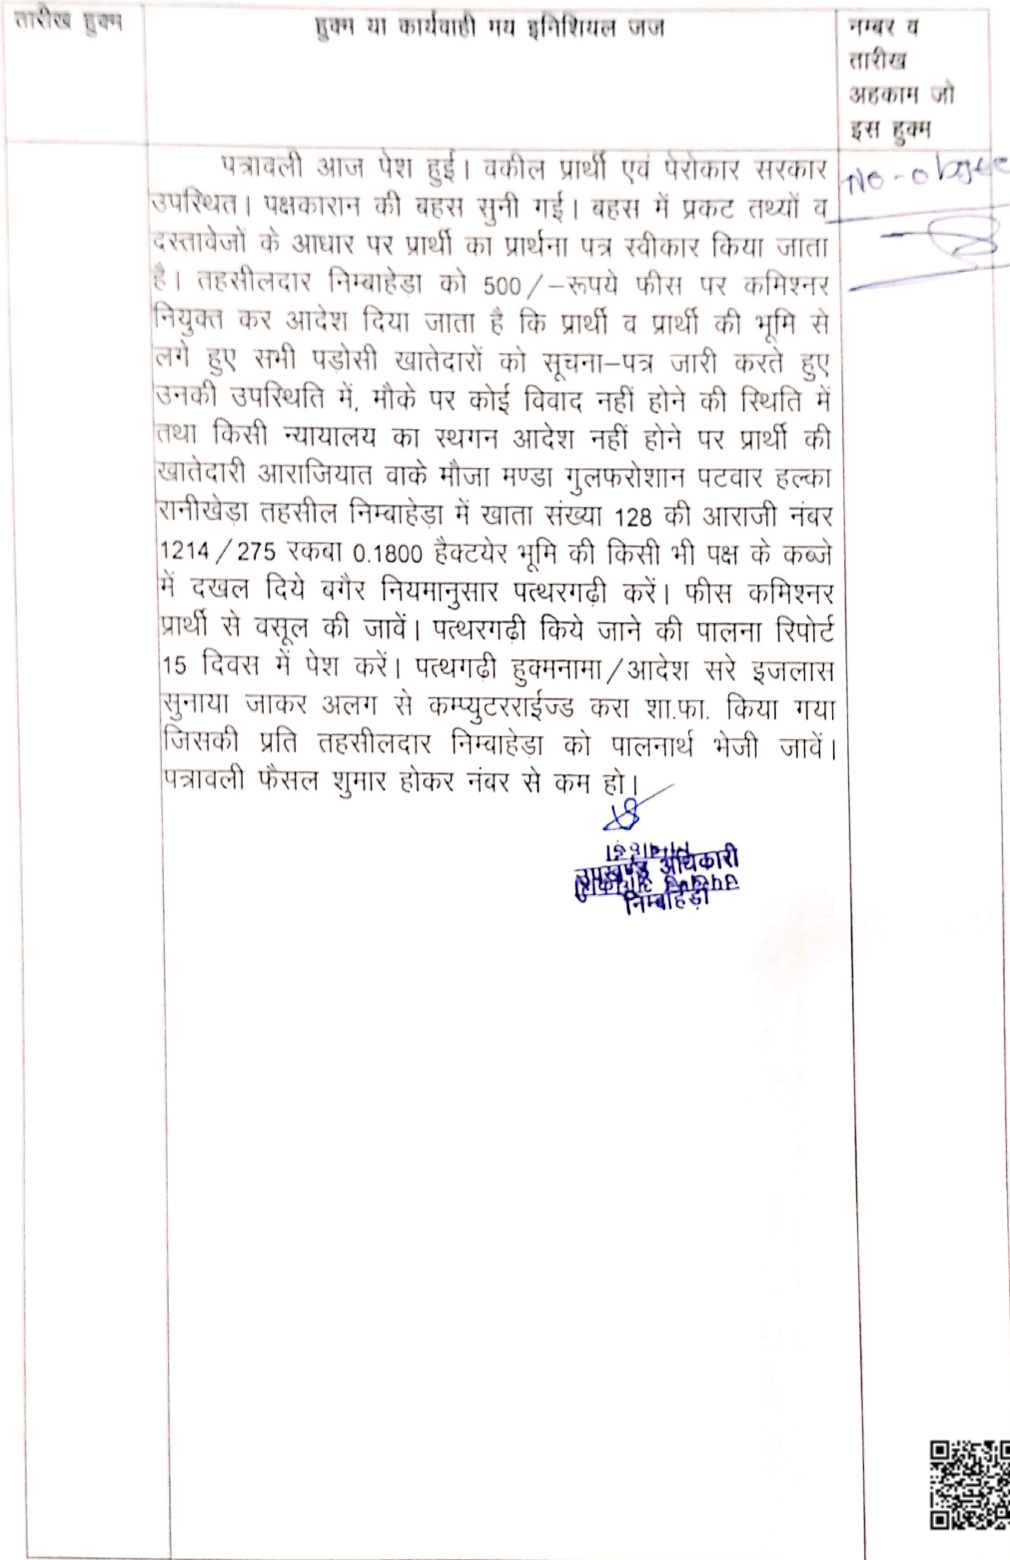 तारीख हुक्म
हुक्म या कार्यवाही मय इनिशियल जज
नम्बर व
तारीख
अहकाम जो
इस हुक्म
पत्रावली आज पेश हुई। वकील प्रार्थी एवं पेरोकार सरकार
उपस्थित। पक्षकारान की बहस सुनी गई। बहस में प्रकट तथ्यों व
दस्तावेजों के आधार पर प्रार्थी का प्रार्थना पत्र स्वीकार किया जाता
है। तहसीलदार निम्बाहेड़ा को 500/-रूपये फीस पर कमिश्नर
नियुक्त कर आदेश दिया जाता है कि प्रार्थी व प्रार्थी की भूमि से
लगे हुए सभी पड़ोसी खातेदारों को सूचना-पत्र जारी करते हुए
उनकी उपस्थिति में, मौके पर कोई विवाद नहीं होने की स्थिति में
तथा किसी न्यायालय का स्थगन आदेश नहीं होने पर प्रार्थी की
खातेदारी आराजियात वाके मौजा मण्डा गुलफरोशान पटवार हल्का
रानीखेड़ा तहसील निम्बाहेड़ा में खाता संख्या 128 की आराजी नंबर
1214/275 रकबा 0.1800 हैक्टयेर भूमि की किसी भी पक्ष के कब्जे
में दखल दिये बगैर नियमानुसार पत्थरगढ़ी करें। फीस कमिश्नर
प्रार्थी से वसूल की जावें। पत्थरगढी किये जाने की पालना रिपोर्ट
15 दिवस में पेश करें। पत्थगढी हुक्मनामा/आदेश सरे इजलास
सुनाया जाकर अलग से कम्प्युटरराईज्ड करा शा.फा. किया गया
जिसकी प्रति तहसीलदार निम्बाहेडा को पालनार्थ भेजी जावें।
पत्रावली फैसल शुमार होकर नंबर से कम हो।
No-objec
उपखण्ड अधिकारी
निम्बाहेड़ा